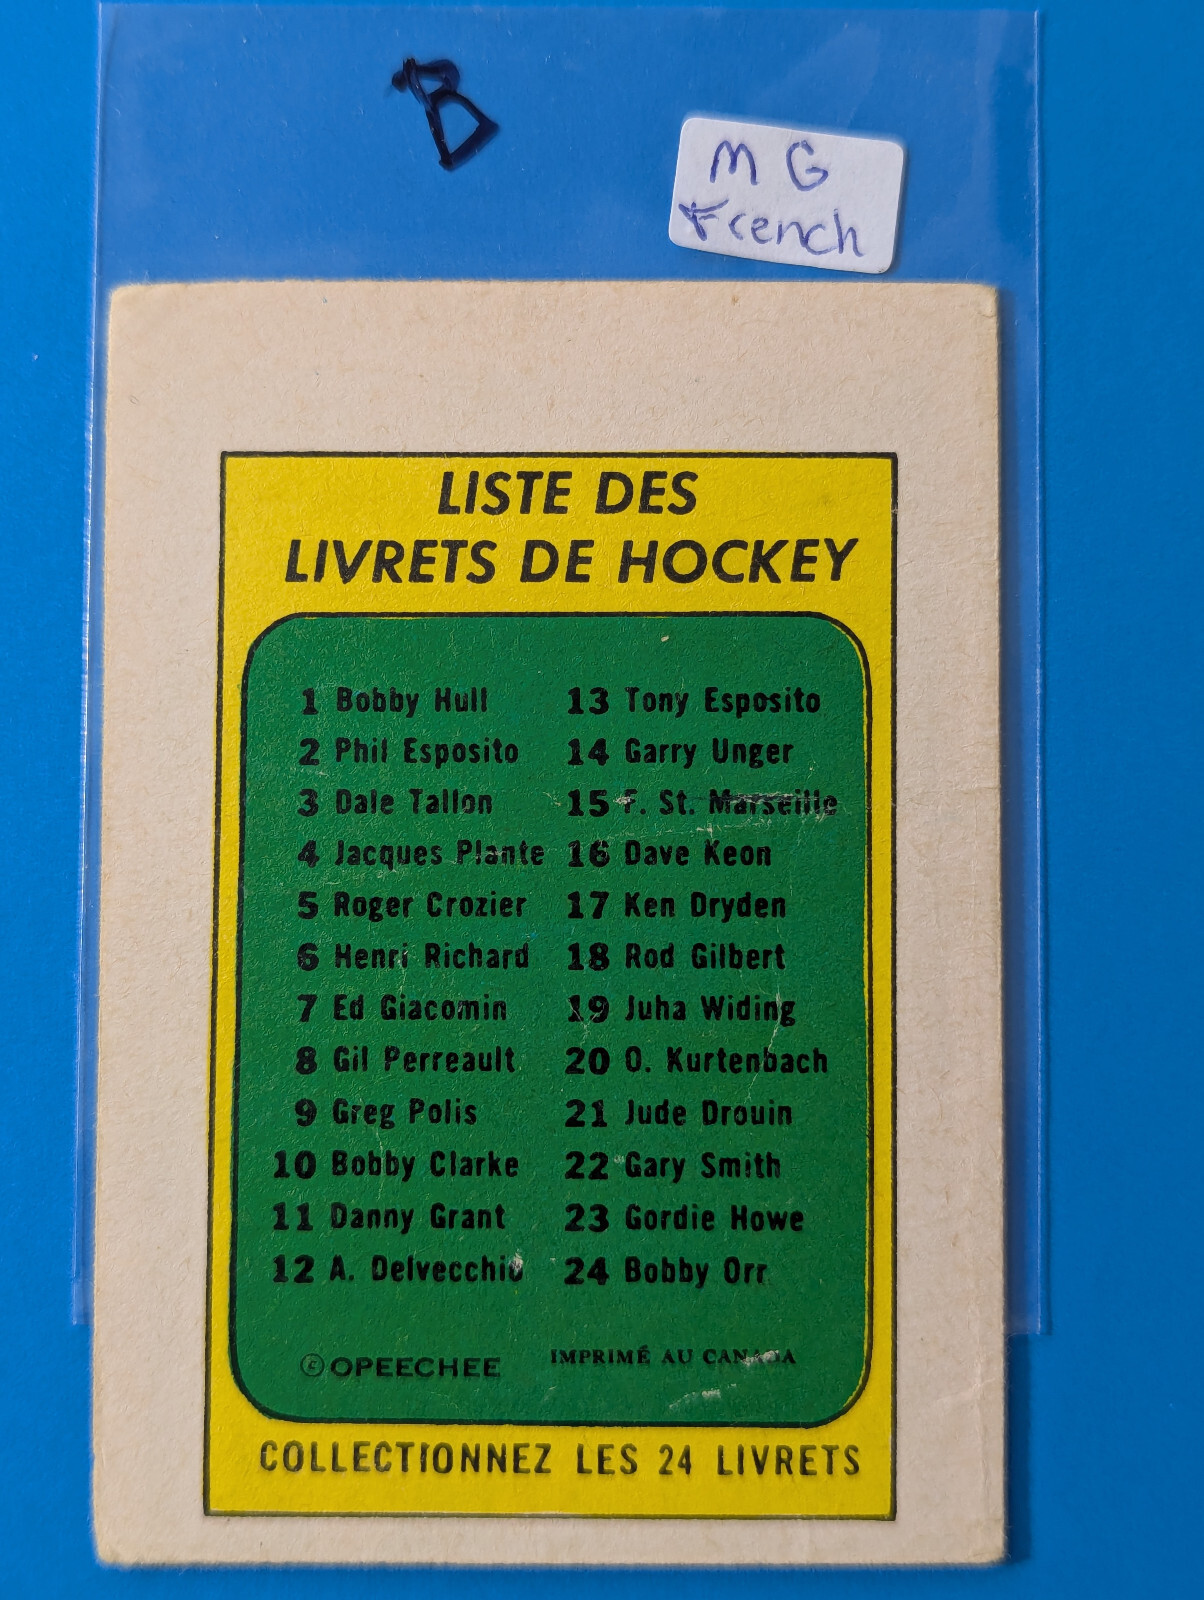 B
M G
French
LISTE DES
LIVRETS DE HOCKEY
1 Bobby Hull
2 Phil Esposito
3 Dale Tallon
4 Jacques Plante
5 Roger Crozier
6 Henri Richard
7 Ed Giacomin
8 Gil Perreault
9 Greg Polis
10 Bobby Clarke
11 Danny Grant
12 A. Delvecchio
13 Tony Esposito
14 Garry Unger
15 F. St. Marseille
16 Dave Keon
17 Ken Dryden
18 Rod Gilbert
19 Juha Widing
20 O. Kurtenbach
21 Jude Drouin
22 Gary Smith
23 Gordie Howe
24 Bobby Orr
©OPEECHEE
IMPRIMÉ AU CANADA
COLLECTIONNEZ LES 24 LIVRETS